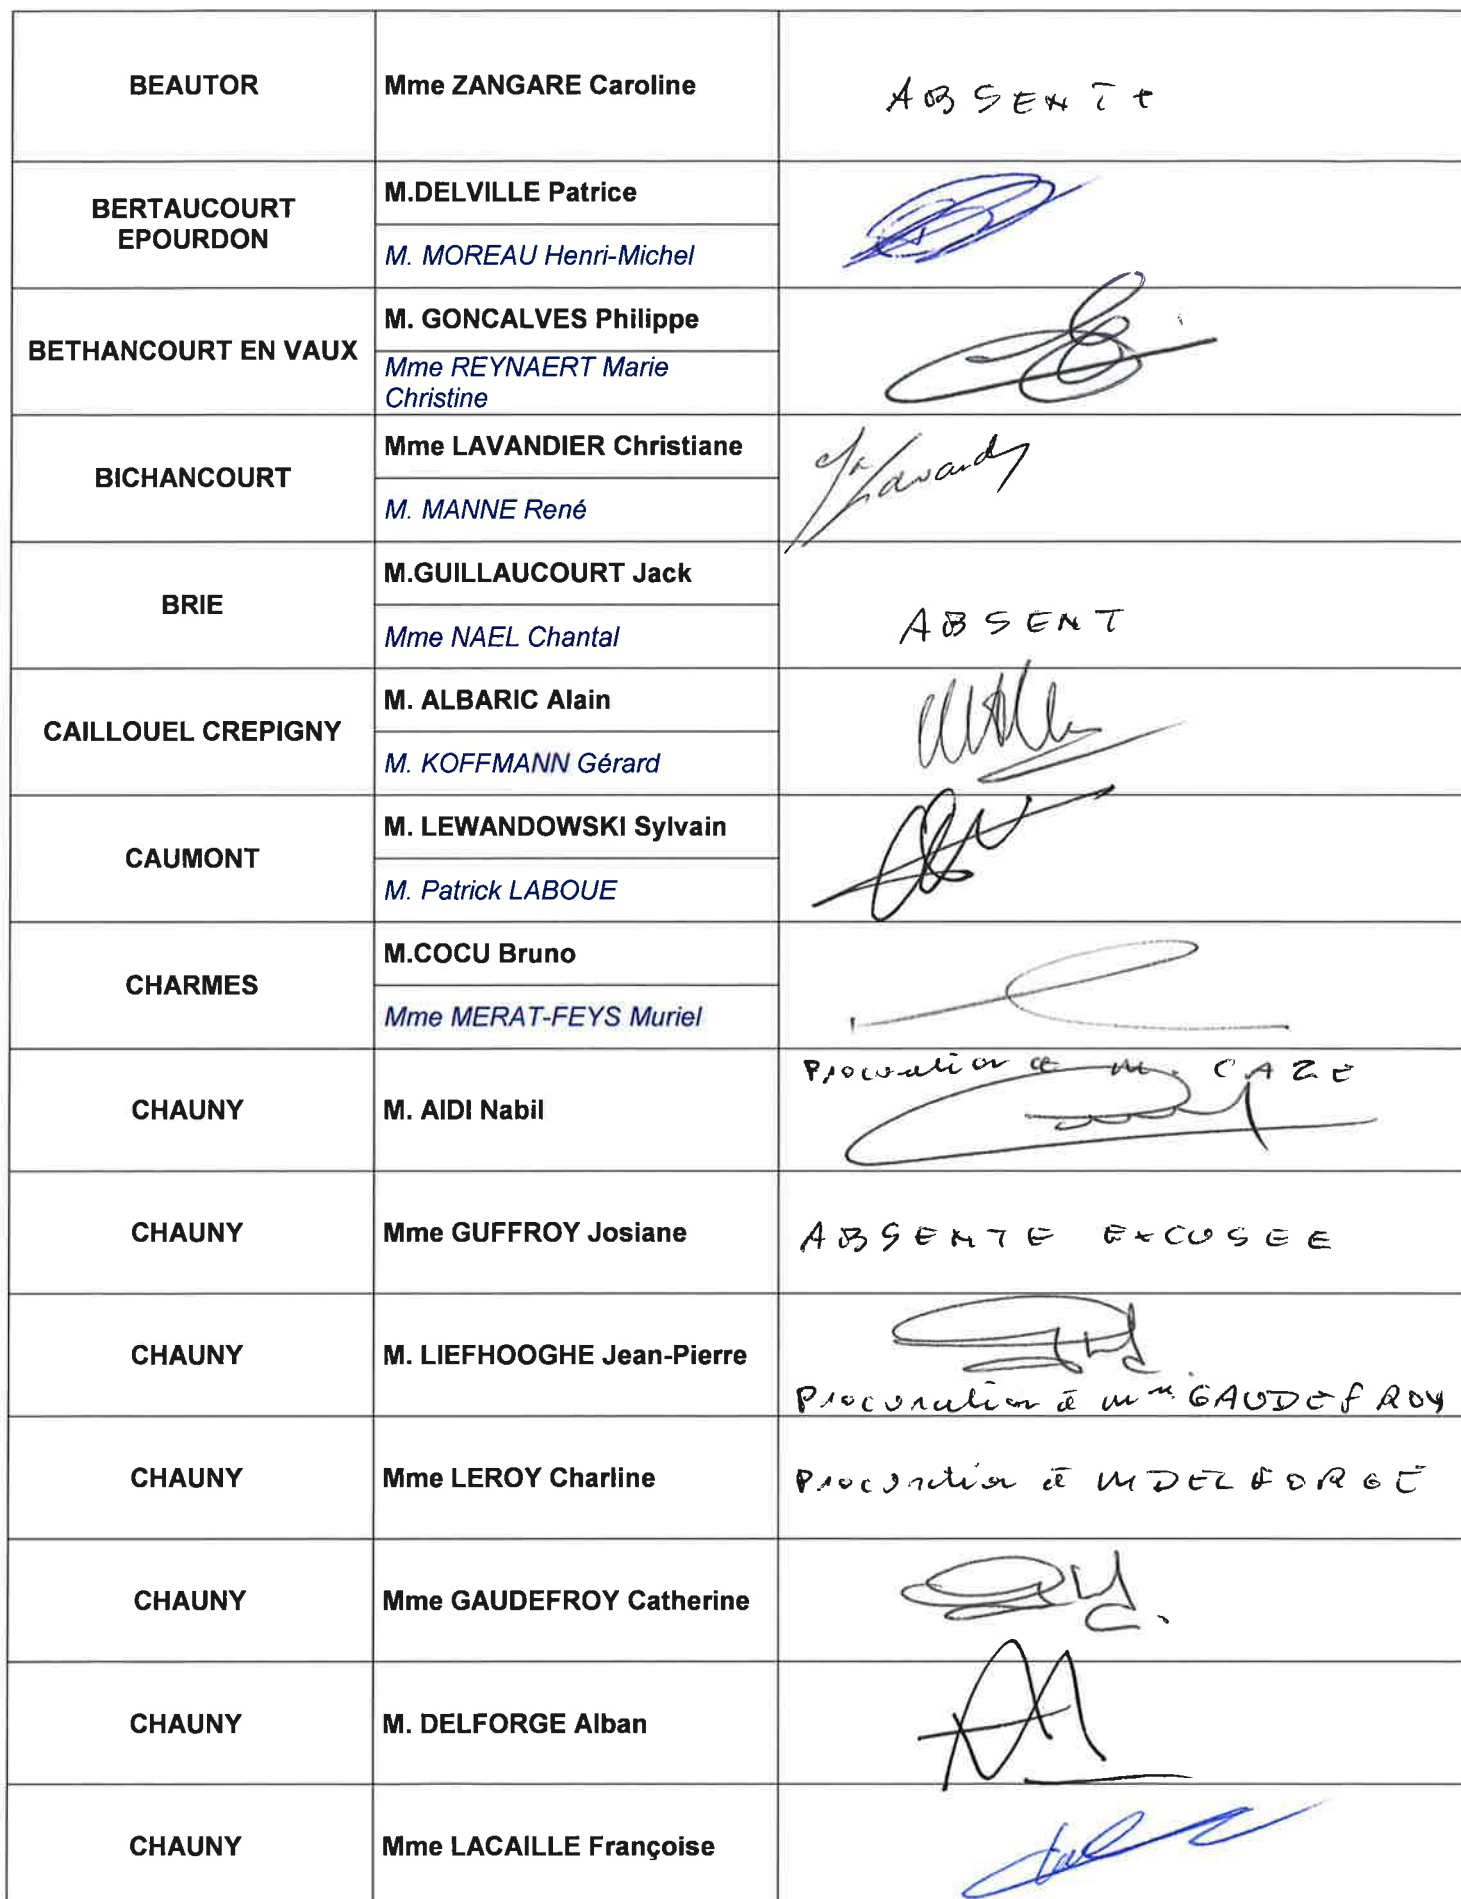 BEAUTOR Mme ZANGARE Caroline ABSENTE
BERTAUCOURT EPOURDON
M.DELVILLE Patrice
M. MOREAU Henri-Michel
BETHANCOURT EN VAUX
M. GONCALVES Philippe
Mme REYNAERT Marie
Christine
BICHANCOURT
Mme LAVANDIER Christiane
M. MANNE René
BRIE
M.GUILLAUCOURT Jack
Mme NAEL Chantal
ABSENT
CAILLOUEL CREPIGNY
M. ALBARIC Alain
M. KOFFMANN Gérard
CAUMONT
M. LEWANDOWSKI Sylvain
M. Patrick LABOUE
CHARMES
M.COCU Bruno
Mme MERAT-FEYS Muriel
CHAUNY M. AIDI Nabil Procuration à M. CAZE
CHAUNY Mme GUFFROY Josiane ABSENTE EXCUSEE
CHAUNY M. LIEFHOOGHE Jean-Pierre
Procuration à Mme GAUDEFROY
CHAUNY Mme LEROY Charline Procuration à M DELFORGE
CHAUNY Mme GAUDEFROY Catherine
CHAUNY M. DELFORGE Alban
CHAUNY Mme LACAILLE Françoise